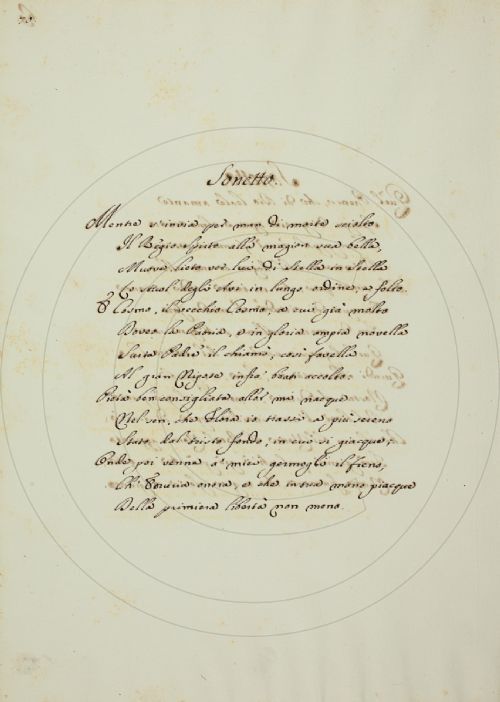 Sonetto.
Mentre s'invia per man di morte sciolto
Il Regio spirto alla magion sua bella,
Muove lieto ver lui di Stella in Stella
Lo stuol degli Avi in lungo ordine, e folto.
E Cosmo, il vecchio Cosmo, a cui già molto
Dovea la Patria, e in gloria ampia novella
Sua Padre il chiamò, così favella
Al gran Nipote infra' beati accolto.
Pietà ben consigliata allor mi nacque
Nel sen, che Flora io trassi a più sereno
Stato dal tristo fondo, in cui si giacque;
Onde poi venne a' miei germogli il freno,
Ch' onora, e che in tua mano piacque
Della primiera libertà non meno.